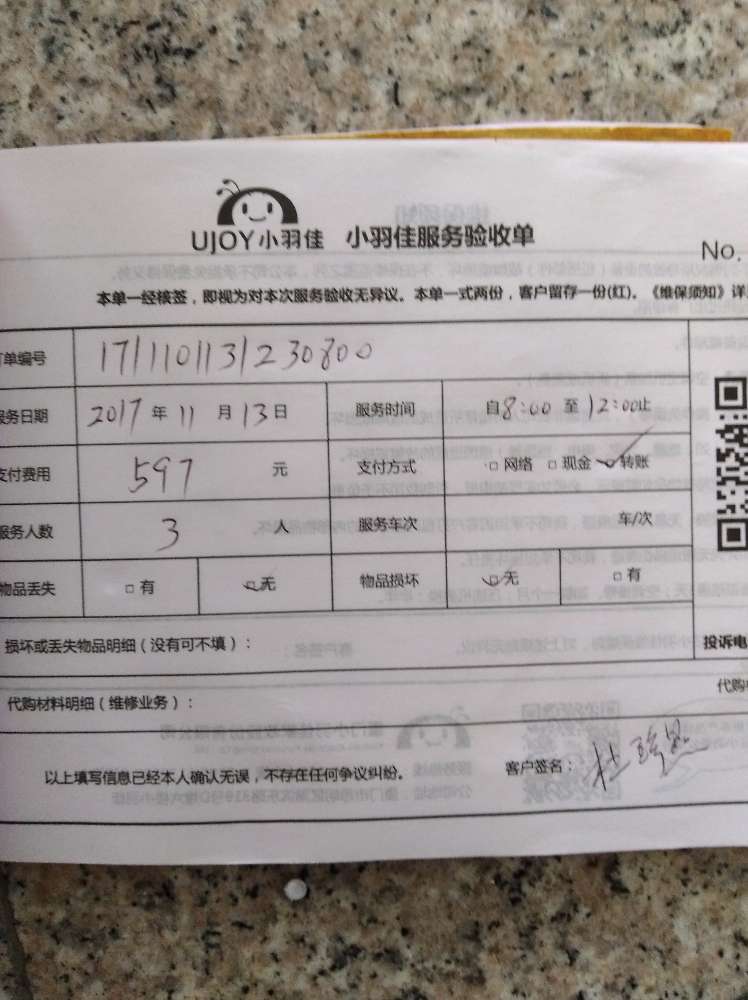 UJOY小羽佳 小羽佳服务验收单
No.
本单一经核签，即视为对本次服务验收无异议。本单一式两份，客户留存一份(红)。《维保须知》详
单编号 1711101131230800
服务日期 2017 年 11 月 13 日 服务时间 自8:00 至 12:00止
支付费用 597 元 支付方式 □网络 □现金 ✓转账
服务人数 3 人 服务车次 车/次
物品丢失 □有 ☑无 物品损坏 ☑无 □有
损坏或丢失物品明细（没有可不填）： 投诉电
代购材料明细（维修业务）： 代购
以上填写信息已经本人确认无误，不存在任何争议纠纷。 客户签名：